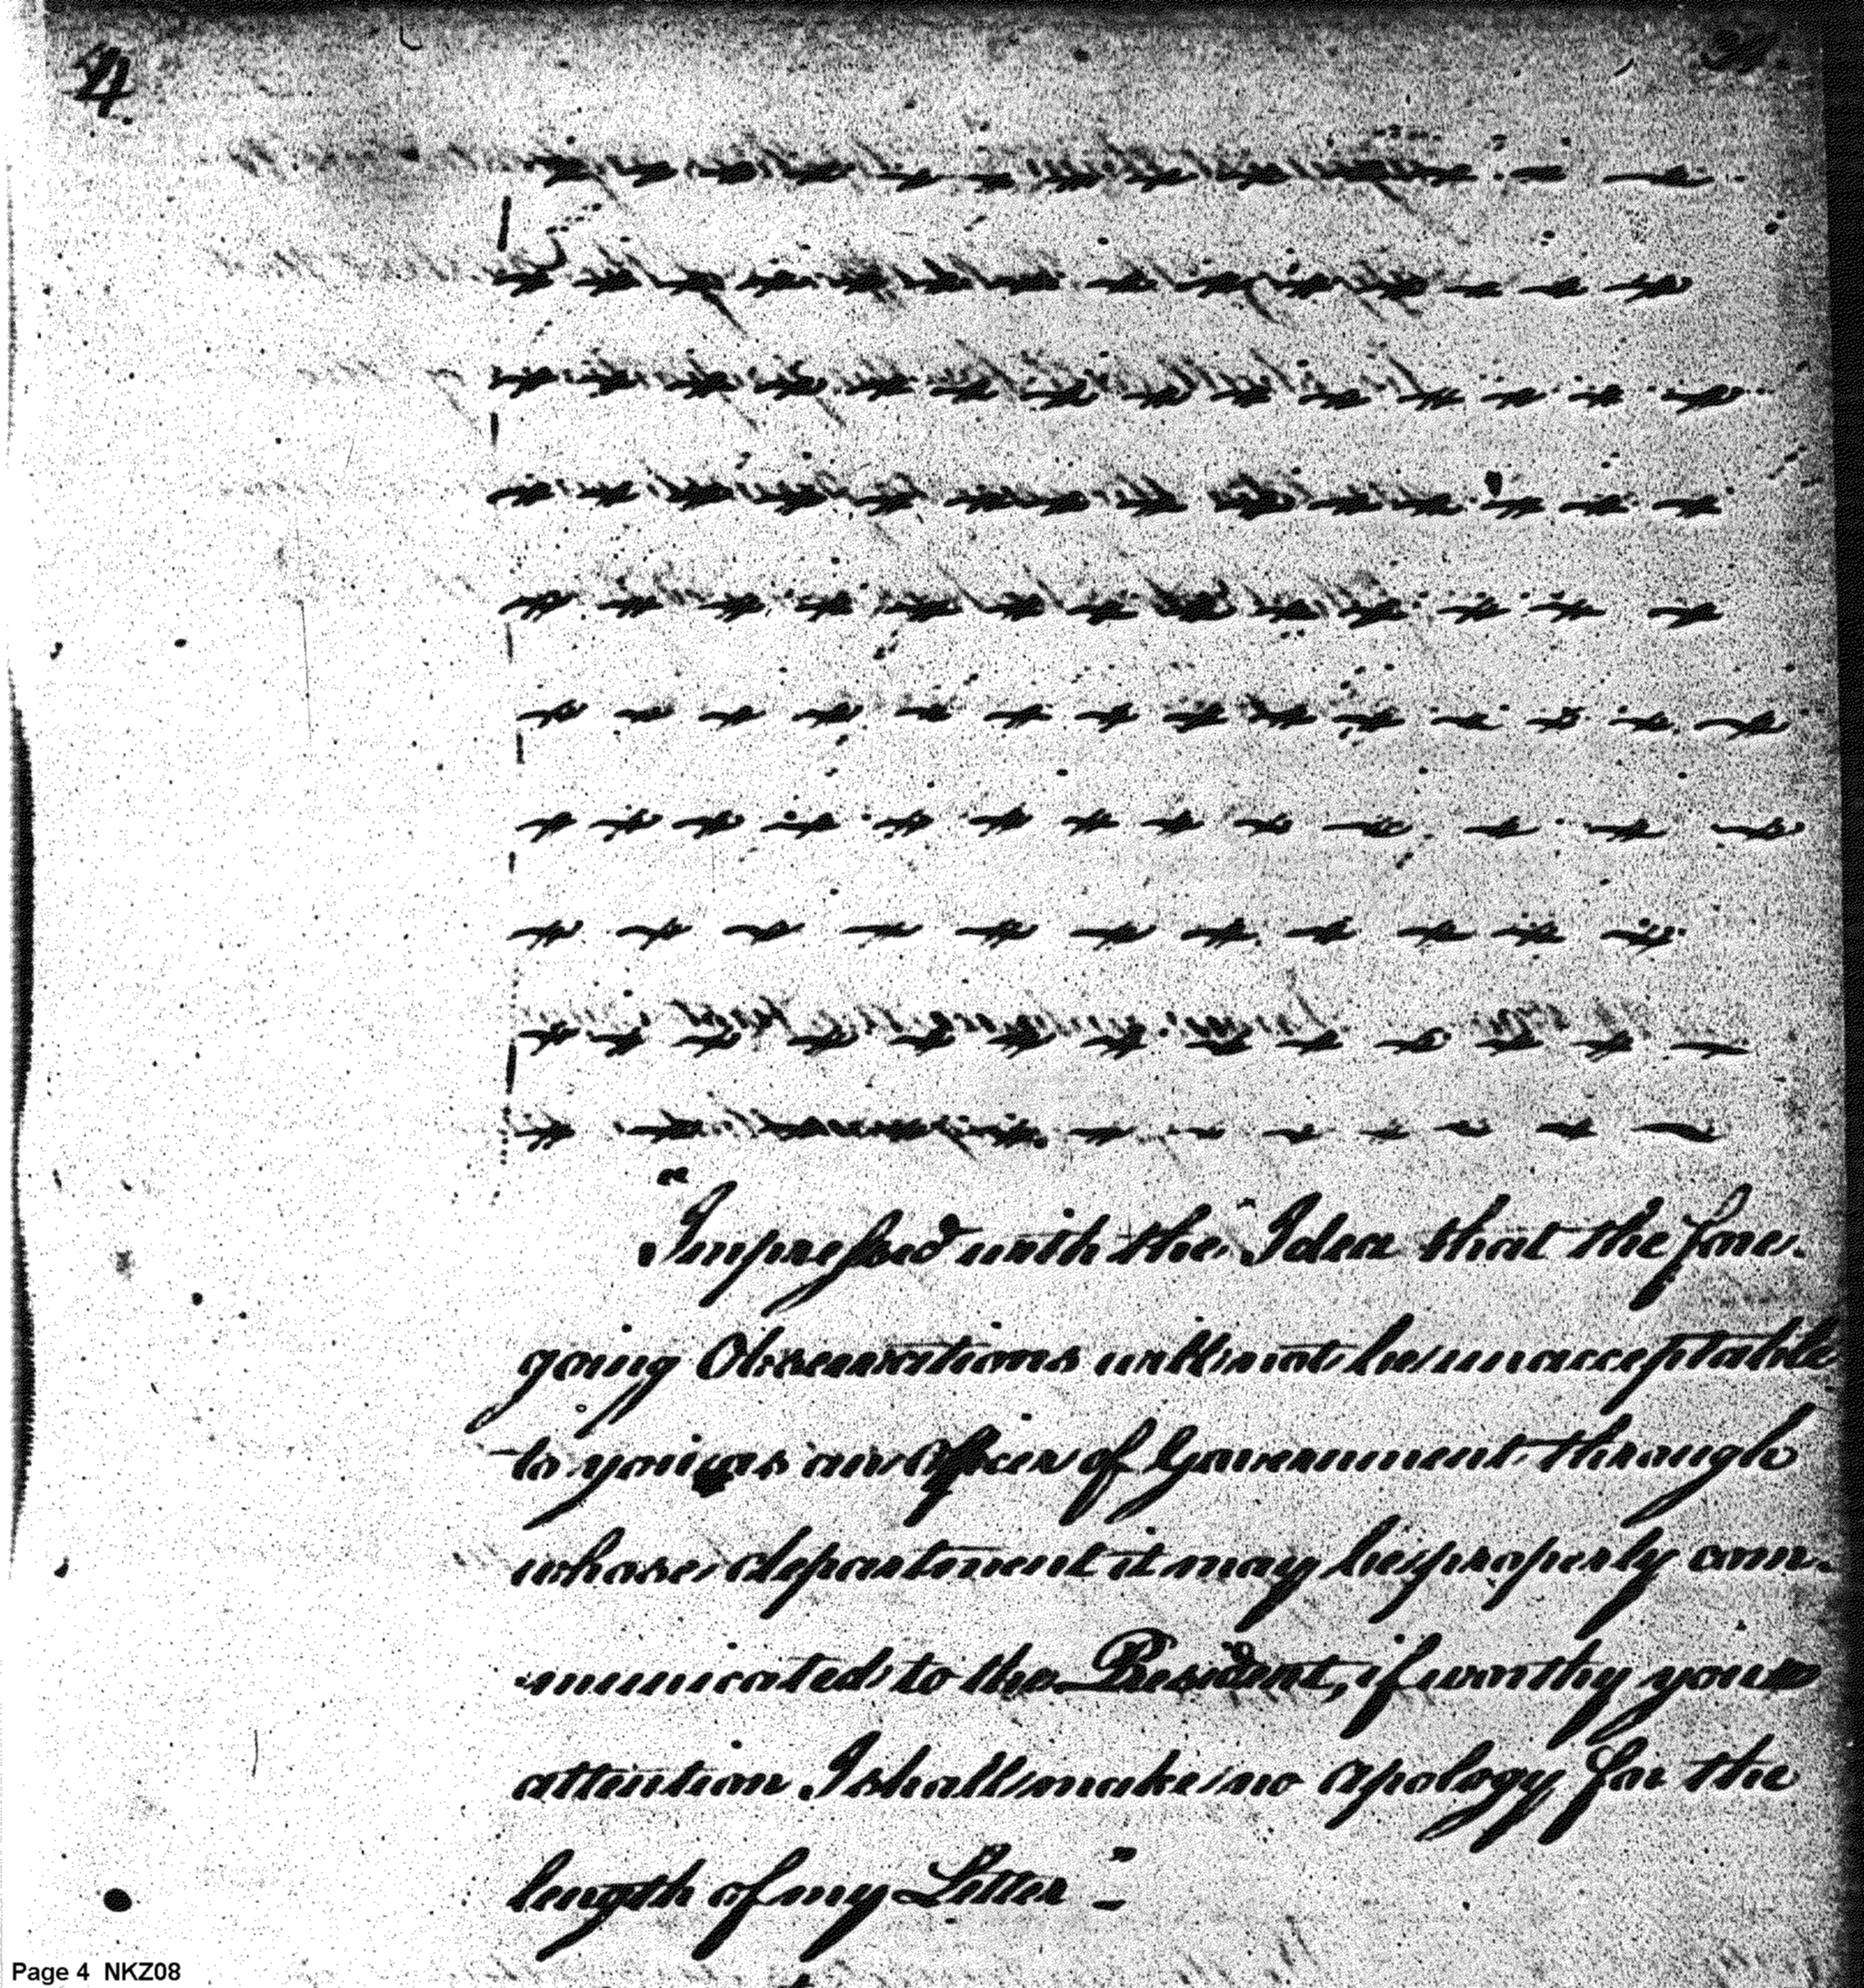 4
"Impressed with the Idea that the fore-
going Observations will not be unacceptable
to you as an Officer of Government through
whose department it may be properly com-
municated to the President, if worthy your
attention I shall make no apology for the
length of my Letter"-
Page 4 NKZ08